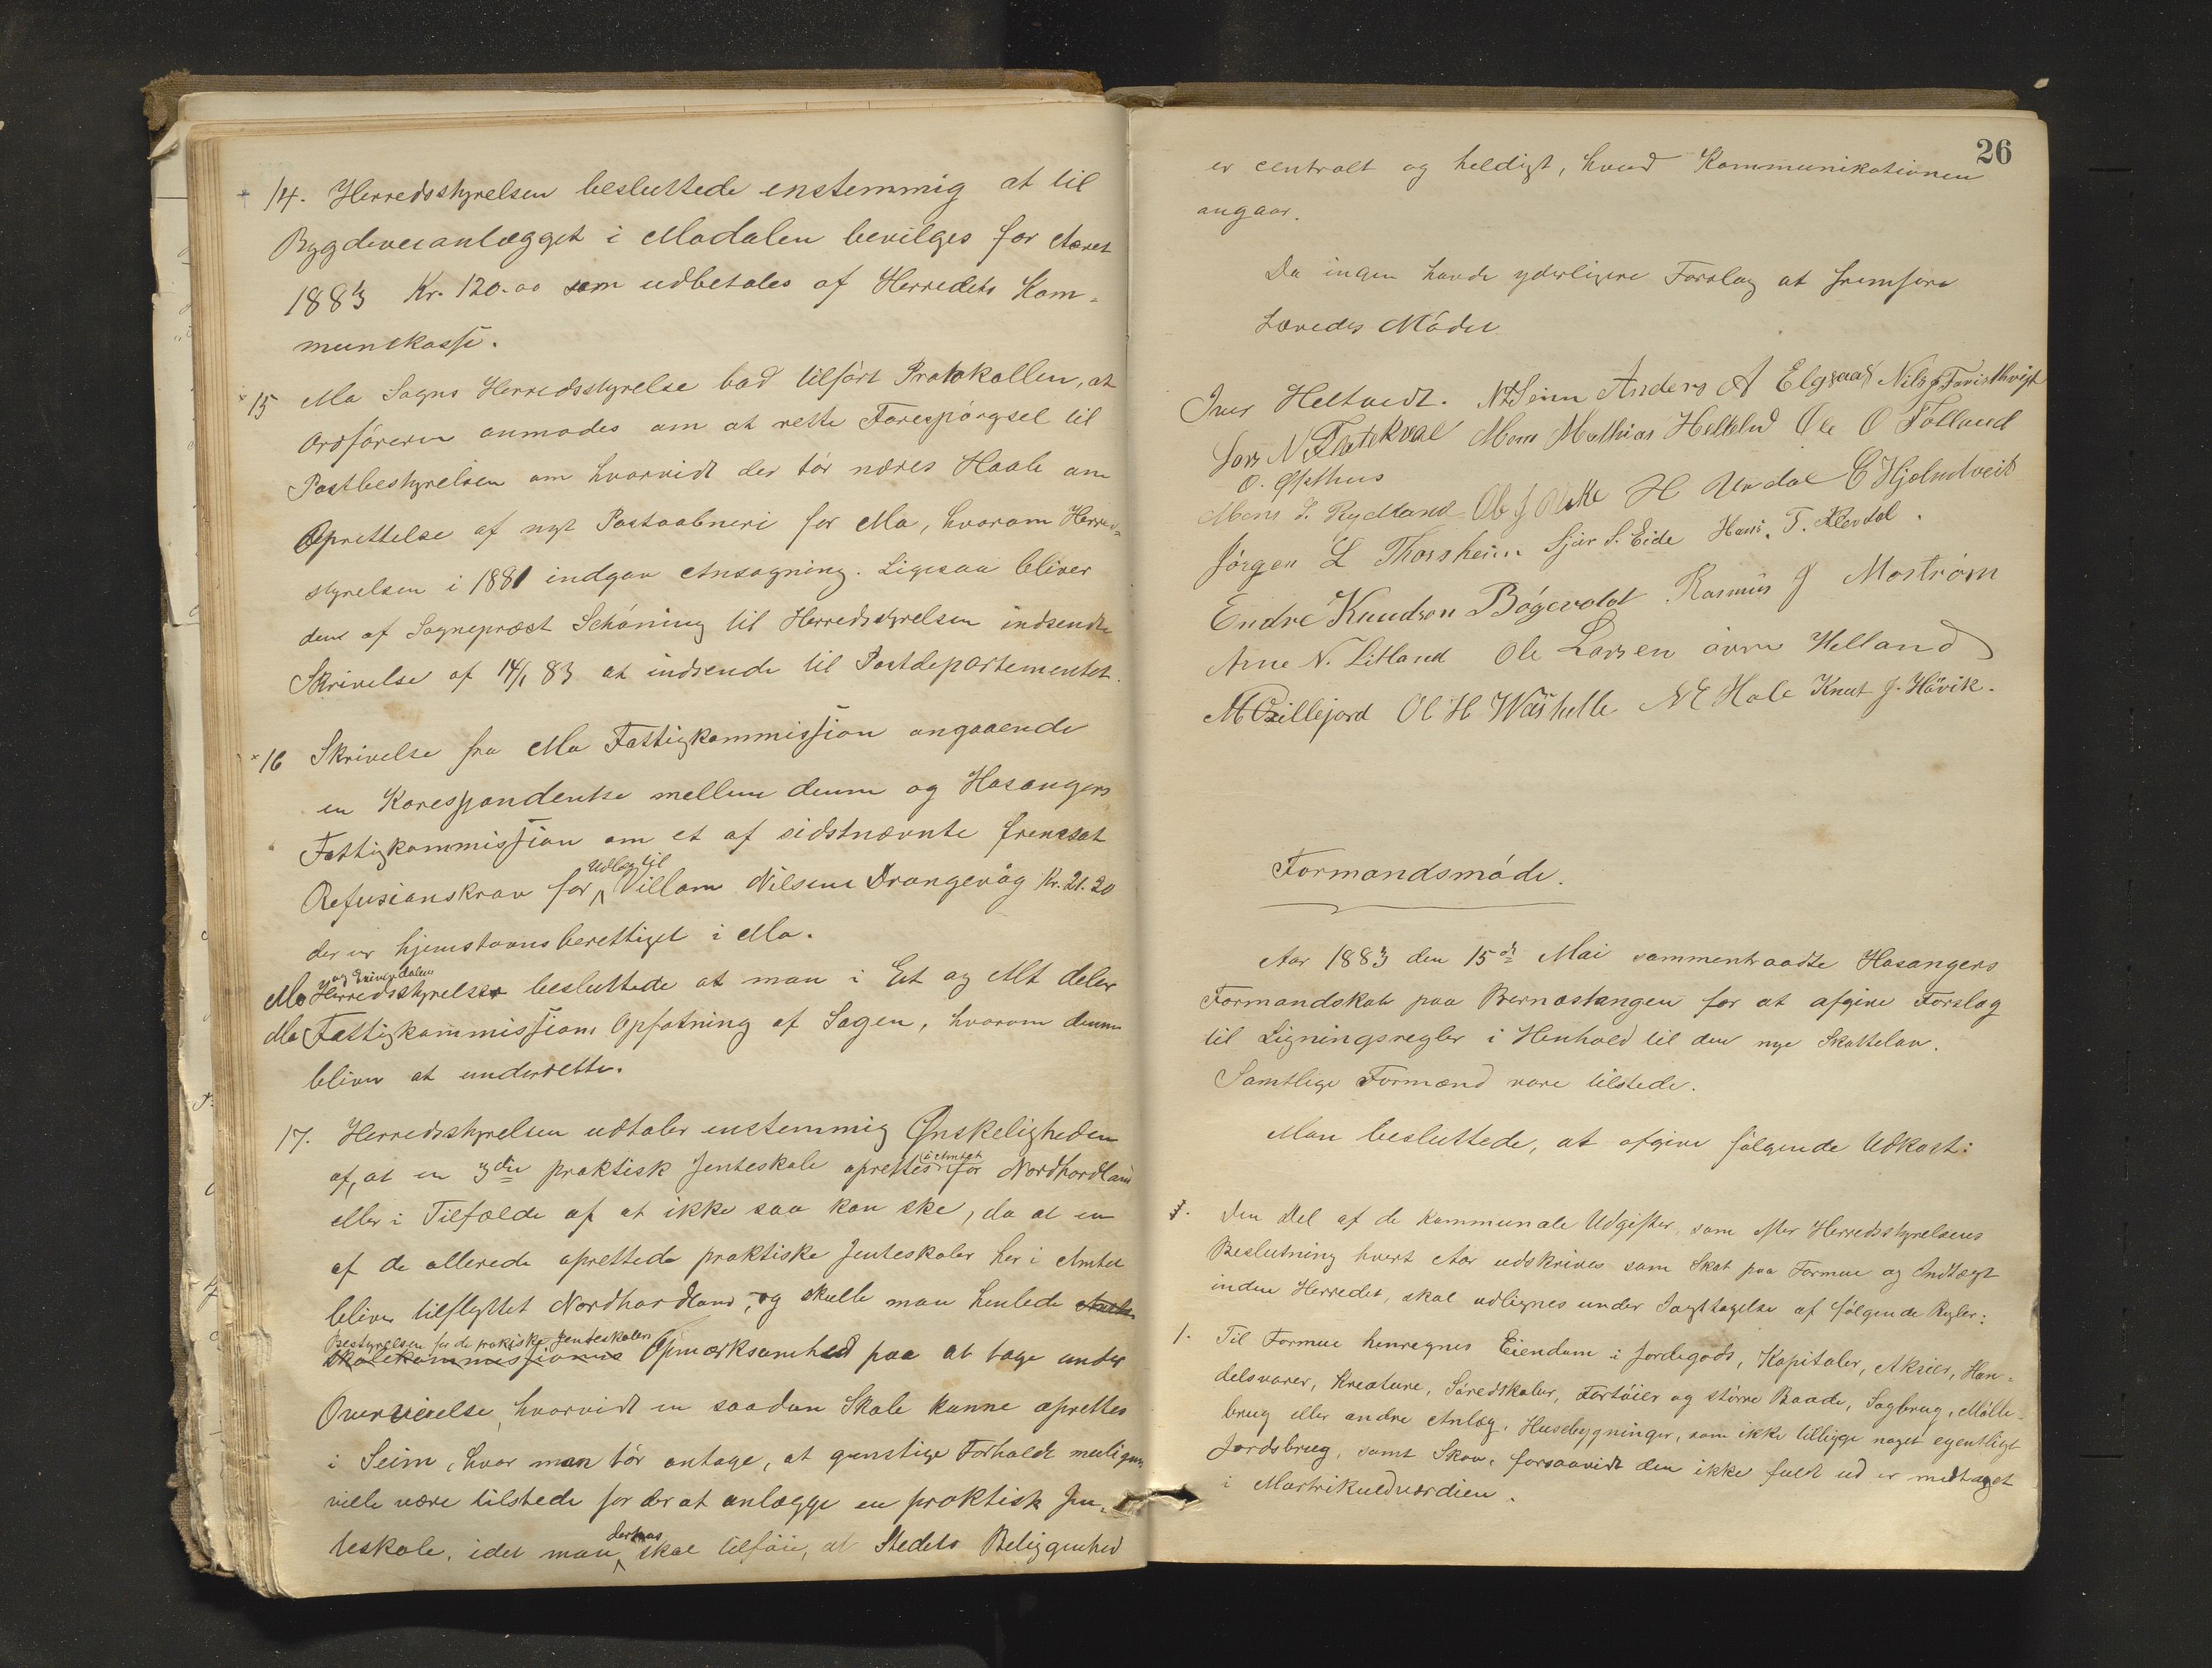 14. Herredsstyrelsen besluttede enstemmig at til
Bygdeveianlægget i Modalen bevilges for Aaret
1883 Kr. 120.00 som udbetales af Herredets Kom-
munekasse.
15 Mo Sogns Herredsstyrelse bad tilført Protokollen, at
Ordføreren anmodes om at rette Forespørgsel til
Postbestyrelsen om hvorvidt der tør næres Haab om
Oprettelse af nyt Postaabneri for Mo, hvorom Herreds-
styrelsen i 1881 indgav Ansøgning. Ligesaa bliver
den af Sognepræst Schøning til Herredsstyrelsen indsendte
Skrivelse af 14/1 83 at indsende til Postdepartementet.
16 Skrivelse fra Mo Fattigkommission angaaende
en Korespondentse mellem denne og Hosangers
Fattigkommission om et af sidstnævnte fremsat
Refusionskrav for Udlæg til Villam Nilsens Drangevåg Kr. 21.20
der er hjemstavnsberettiget i Mo.
Mo og Exingedalens Herredsstyrelser besluttede at man i Et og Alt deler
Mo Fattigkommissions Opfatning af Sagen, hvorom denne
bliver at underrette.
17. Herredsstyrelsen udtaler enstemmig Ønskeligheden
af, at en 3die praktisk Jenteskole oprettes i Amtet for Nordhordland
eller i Tilfælde af at ikke saa kan ske, da at en
af de allerede oprettede praktiske Jenteskoler her i Amtet
bliver tilflyttet Nordhordland, og skulle man henlede
Bestyrelsen for de praktiske Jenteskolers
Skolekommissionens Opmærksomhed paa at tage under
Overveielse, hvorvidt en saadan Skole kunne oprettes
i Seim, hvor man tør antage, at gunstige Forholde meuligens
ville være tilstede for der at anlægge en praktisk Jen-
teskole, idet man derhos skal tilføie, at Stedets Beliggenhed
26
er centralt og heldigt, hvad Kommunikationen
angaar.
Da ingen havde yderligere Forslag at fremføre
hævedes Mødet
Iver Heltvedt. N Seim Anders A Elgsaas Nils
Lars N. Mons Mathias Ole O Fotland
O. Opthus
Mons I. Rydland Ole J H Urdal E Hjelmtveit
Jørgen L Thorsheim Sjur S. Eide Hans. T.
Endre Knudson Bøgevoldt Rasmus J Mostrøm
Arne N. Litland Ole Larsen øvre Helland
M Ol H N E Hole Knut J. Høvik.
Formandsmøde.
Aar 1883 den 15de Mai sammentraadte Hosangers
Formandskab paa Bernestangen for at afgive Forslag
til Ligningsregler i Henhold til den nye Skattelov.
Samtlige Formænd vare tilstede.
Man besluttede, at afgive følgende Udkast:
Den Del af de kommunale Udgifter, som efter Herredsstyrelsens
Beslutning hvert Aar udskrives som Skat paa Formue og Indtægt
inden Herredet, skal udlignes under Iagttagelse af følgende Regler:
1. Til Formue henregnes Eiendom i Jordegods, Kapitaler, Aksier, Han-
delsvarer, Kreature, Søredskaber, Fartøier og større Baade, Sagbrug, Mølle-
brug eller andre Anlæg, Husebygninger, som ikke tilligge noget egentligt
Jordsbrug, samt Skov, forsaavidt den ikke fuldt ud er medtaget
i Martrikulværdien.